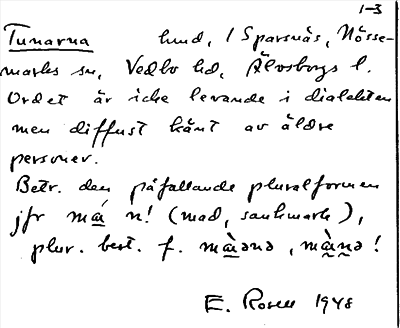 1-3
Tunarna hund, i Sparsnäs, Nösse-
marks sn, Vedbo hd, Älvsborgs l.
Ordet är icke levande i dialekten
men diffust känt av äldre
personer.
Betr. den påfallande pluralformen
jfr må n! (mad, sankmark),
plur. best. f. må̀ənə, mà̰n̰ə!
E. Rosell 1948